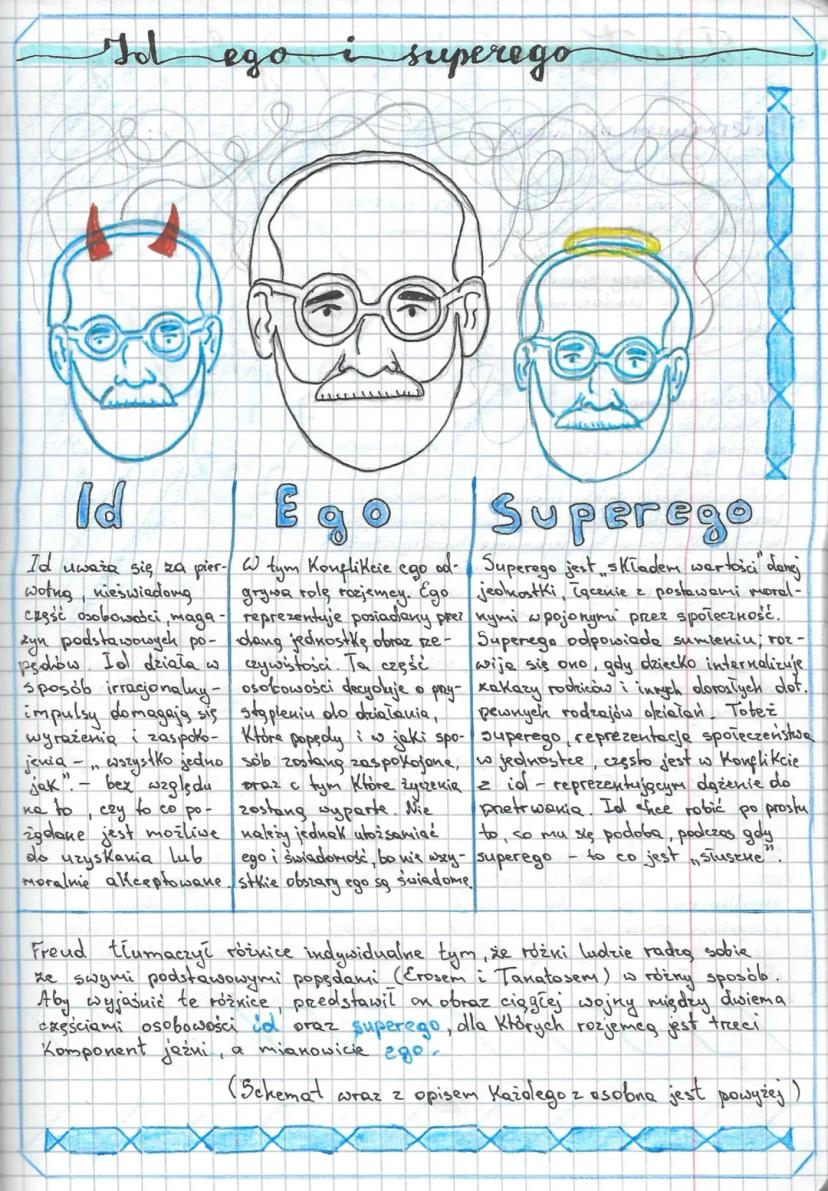 Id ego i superego
Id
Id uważa się za pier-
wotną, nieświadomą
część osobowości, maga-
zyn podstawowych po-
pędów. Id działa w
sposób irracjonalny -
impulsy domagają się
wyrażenia i zaspoko-
jenia - „wszystko jedno
jak". - bez względu
na to, czy to co po-
żądane jest możliwe
do uzyskania lub
moralnie akceptowane.
Ego
W tym konflikcie ego od-
grywa rolę rozjemcy. Ego
reprezentuje posiadany przez
daną jednostkę obraz rze-
czywistości. Ta część
osobowości decyduje o przy-
stąpieniu do działania,
które popędy i w jaki spo-
sób zostaną zaspokojone,
oraz o tym które życzenia
zostaną wyparte. Nie
należy jednak utożsamiać
ego i świadomość, bo nie wszy-
stkie obszary ego są świadome.
Superego
Superego jest „składem wartości" danej
jednostki, łącznie z postawami moral-
nymi wpojonymi przez społeczność.
Superego odpowiada sumieniu; roz-
wija się ono, gdy dziecko internalizuje
zakazy rodziców i innych dorosłych dot.
pewnych rodzajów działań. Toteż
superego, reprezentacja społeczeństwa
w jednostce, często jest w konflikcie
z id - reprezentującym dążenie do
przetrwania. Id chce robić po prostu
to, co mu się podoba, podczas gdy
superego - to co jest „słuszne".
Freud tłumaczył różnice indywidualne tym, że różni ludzie radzą sobie
ze swymi podstawowymi popędami (Erosem i Tanatosem) w różny sposób.
Aby wyjaśnić te różnice, przedstawił on obraz ciągłej wojny między dwiema
częściami osobowości id oraz superego, dla których rozjemcą jest trzeci
komponent jaźni, a mianowicie ego.
(Schemat wraz z opisem każdego z osobna jest powyżej)